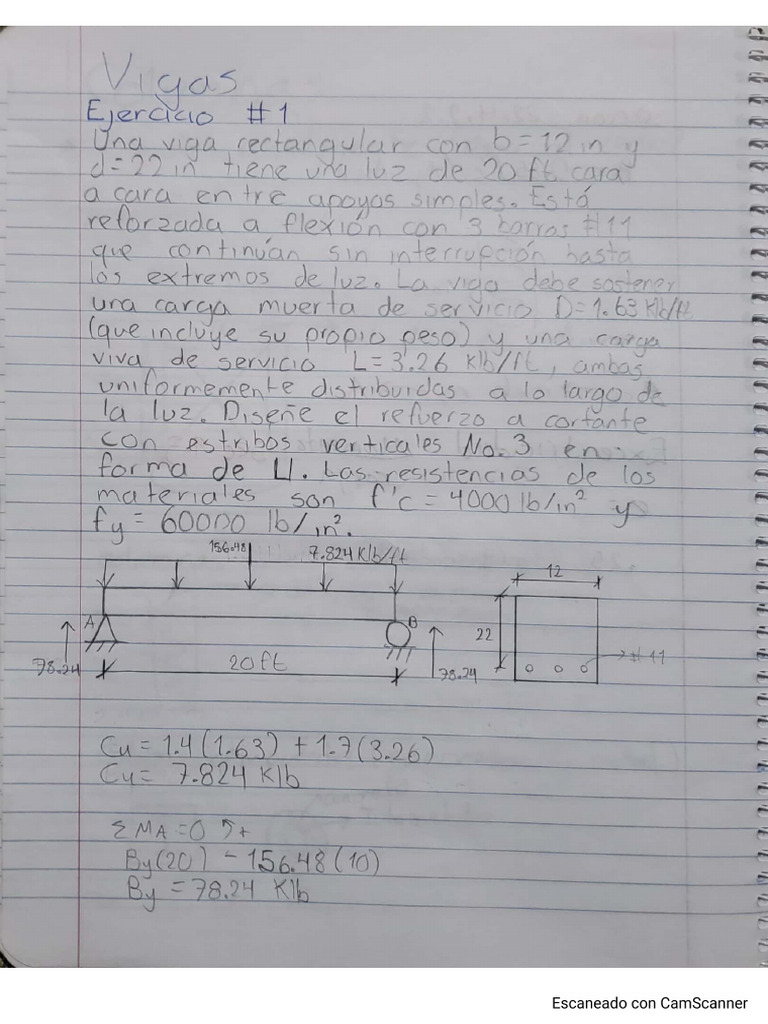 Vigas
Ejercicio #1
Una viga rectangular con b=12 in y
d=22 in tiene una luz de 20 ft cara
a cara entre apoyos simples. Está
reforzada a flexión con 3 barras #11
que continúan sin interrupción hasta
los extremos de luz. La viga debe sostener
una carga muerta de servicio D=1.63 Klb/ft
(que incluye su propio peso) y una carga
viva de servicio L=3.26 klb/ft, ambas
uniformemente distribuidas a lo largo de
la luz. Diseñe el refuerzo a cortante
con estribos verticales No. 3 en
forma de U. Las resistencias de los
materiales son f'c = 4000 lb/in² y
fy = 60000 lb/in².
156.48 7.824 Klb/ft
12
A B
22
78.24 20ft 78.24 #11
Cu = 1.4(1.63) + 1.7(3.26)
Cu = 7.824 Klb
ΣMA=0 ↰+
By(20) - 156.48(10)
By = 78.24 Klb
Escaneado con CamScanner